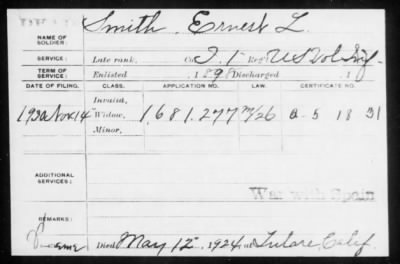 NAME OF SOLDIER: Smith, Ernest L.
SERVICE: Late rank, Co. I. 1 Reg't U S Vol Inf.
TERM OF SERVICE: Enlisted , 1898 Discharged , 1
DATE OF FILING. CLASS. APPLICATION NO. LAW. CERTIFICATE NO.
Invalid,
1930 Nov 14 Widow, 1,681,277 A 5 18 31
Minor,
ADDITIONAL SERVICES:
War with Spain
REMARKS:
Died May 12, 1924, at Tulare, Calif.